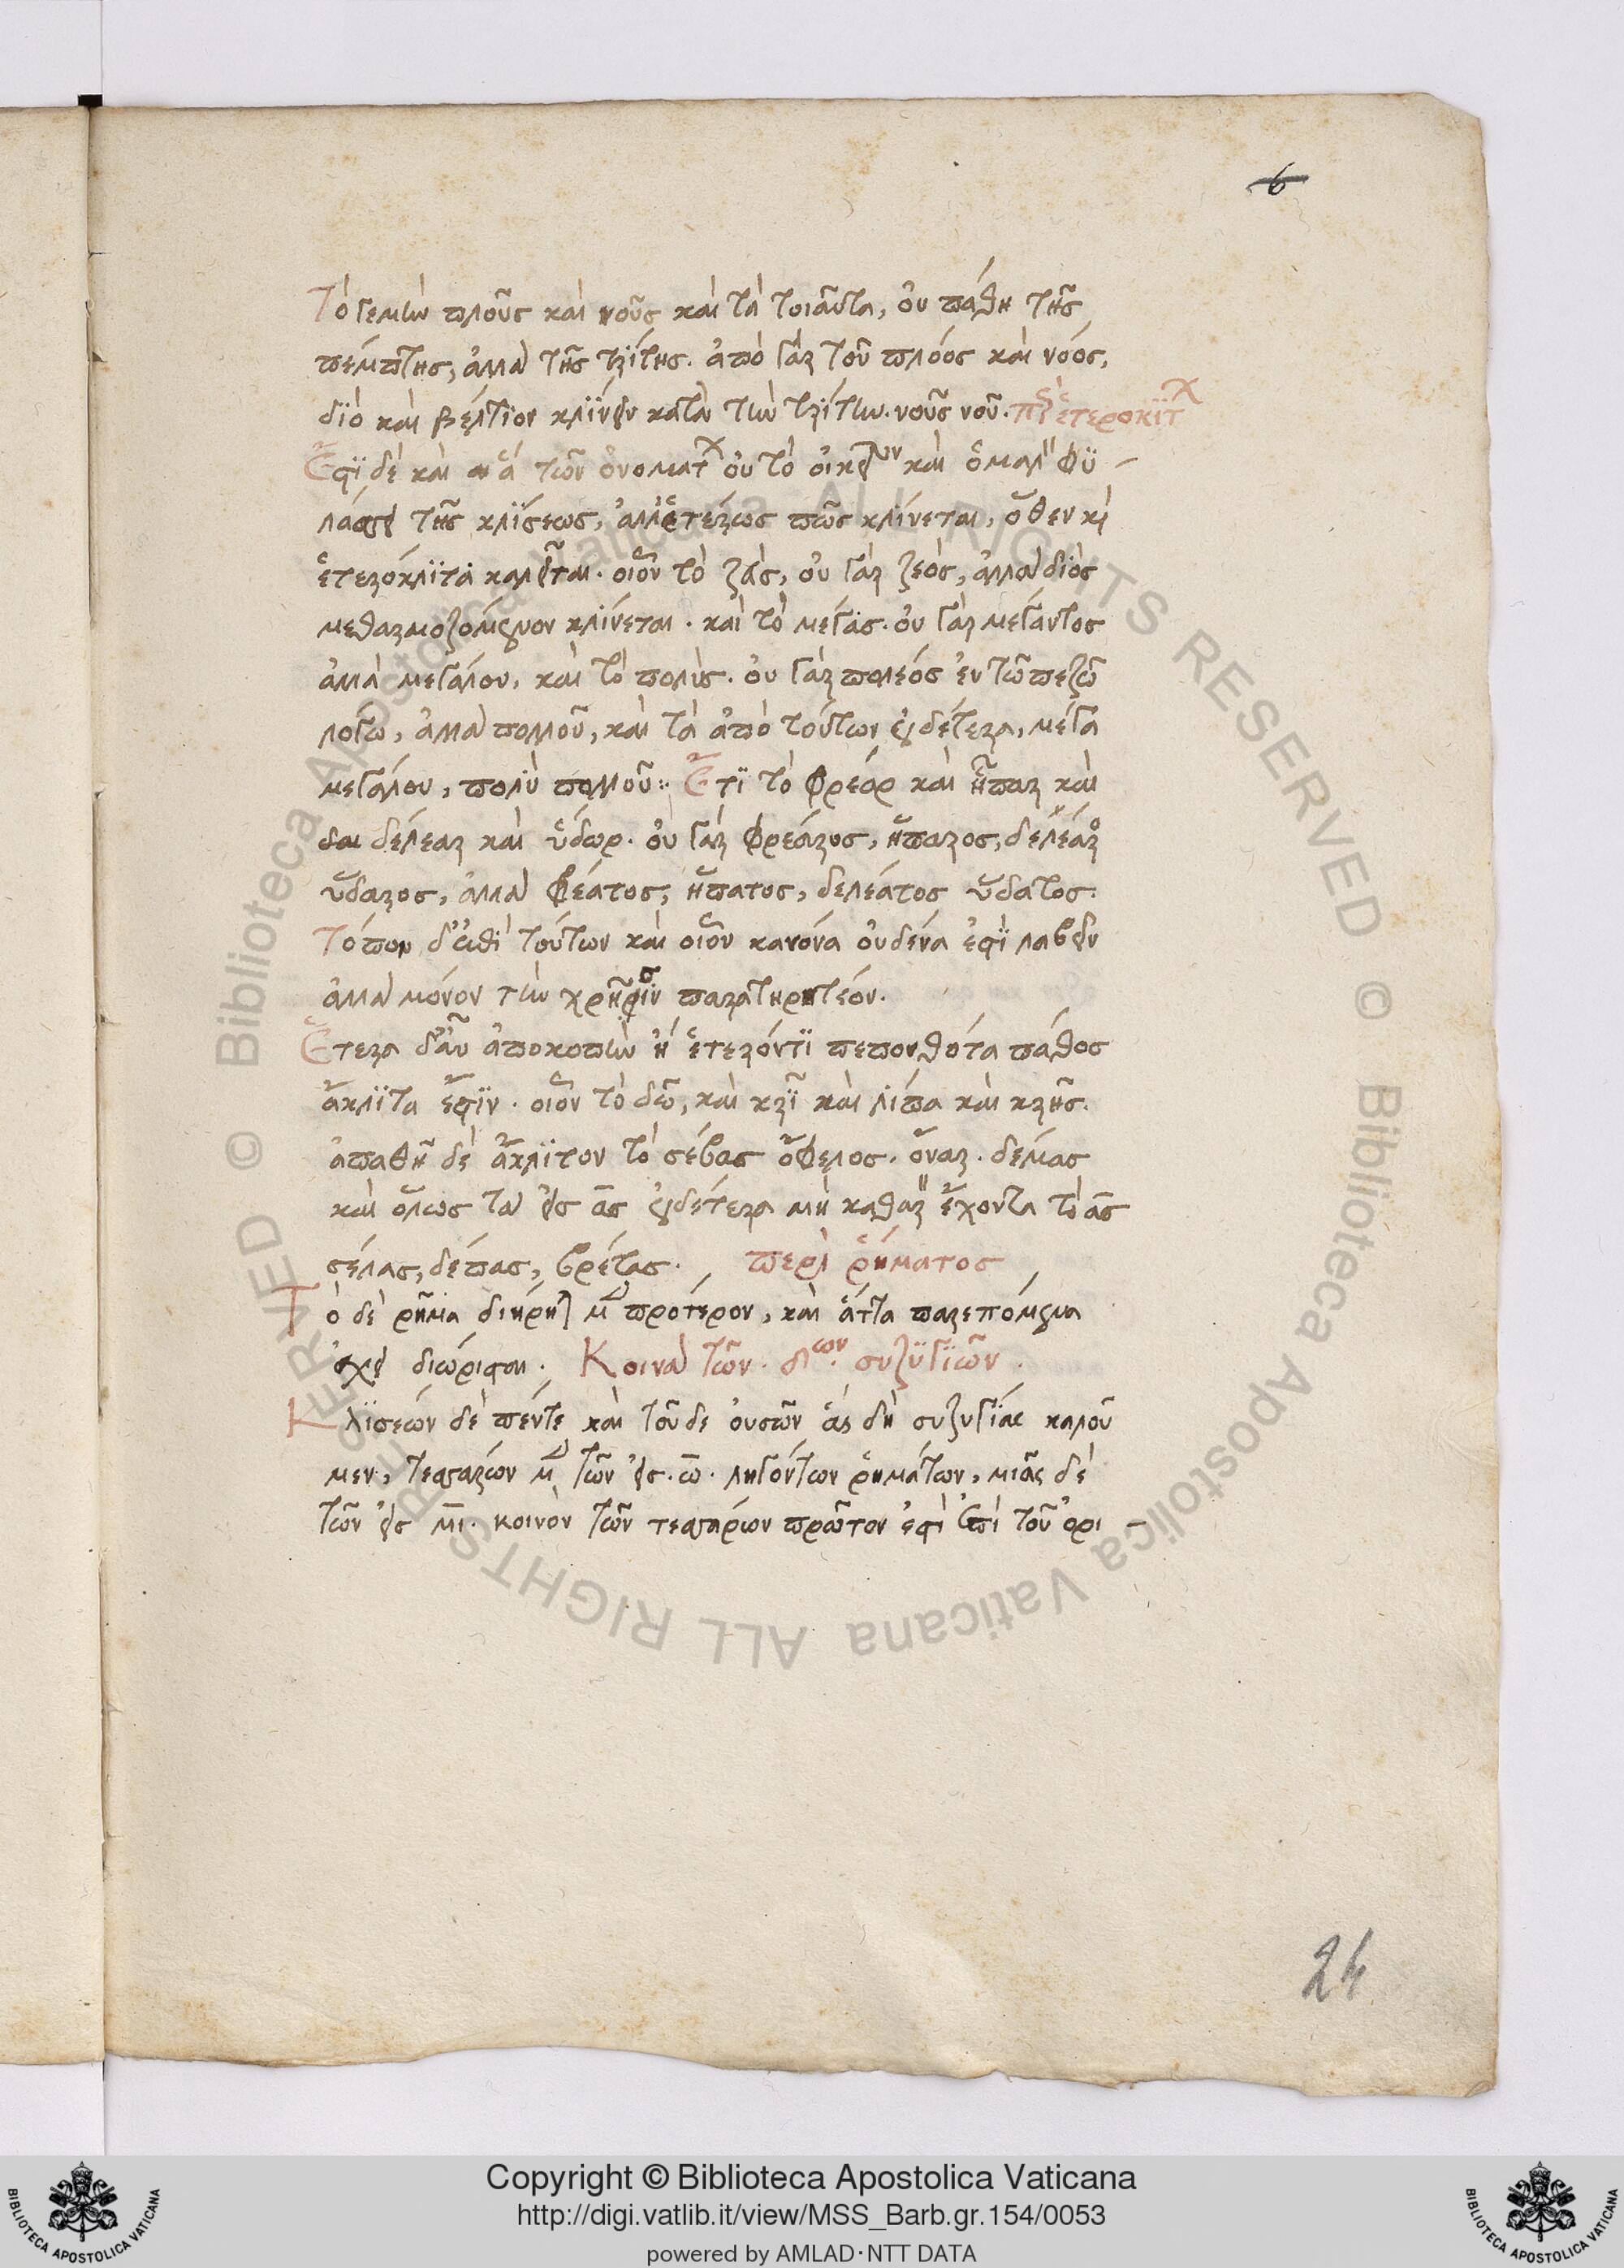 6
Τὸ γεμὼν πλοῦς καὶ νοῦς καὶ τὰ τοιαῦτα, οὐ πάθη τῆς
πέμπτης, ἀλλὰ τῆς τρίτης. ἀπὸ γὰρ τοῦ πλόος καὶ νοός,
διὸ καὶ βέλτιον κλίνειν κατὰ τὴν τρίτην. νοῦς νοῦ. ἑτεροκλίτ
Ἔστι δὲ καὶ ἃ τῶν ὀνομάτ οὐ τὸ οἰκεῖον καὶ ὁμαλὸν φυ-
λάσσει τῆς κλίσεως, ἀλλ' ἑτέρως πως κλίνεται, ὅθεν καὶ
ἑτερόκλιτα καλεῖται. οἷον τὸ ζεὺς, οὐ γὰρ ζεός, ἀλλὰ διὸς
μεθαρμοζόμενον κλίνεται. καὶ τὸ μέγας. οὐ γὰρ μέγαντος
ἀλλὰ μεγάλου, καὶ τὸ πολύς. οὐ γὰρ πολεός ἐν τῶ πεζῶ
λόγω, ἀλλὰ πολλοῦ, καὶ τὰ ἀπὸ τούτων οὐδέτερα, μέγα
μεγάλου, πολὺ πολλοῦ: Ἔτι τὸ φρέαρ καὶ ἧπαρ καὶ
δέλεαρ καὶ ὕδωρ. οὐ γὰρ φρέαρος, ἥπαρος, δελέαρος
ὕδαρος, ἀλλὰ φέατος, ἥπατος, δελέατος ὕδατος.
Τόπον δ' ἐπὶ τούτων καὶ οἷον κανόνα οὐδένα ἐστὶ λαβεῖν
ἀλλὰ μόνον τὴν χρῆσιν παρατηρητέον.
Ἕτερα δ' αὖ ἀποκοπὴν ἢ ἕτερόν τι πεπονθότα πάθος
ἄκλιτα ἐστίν. οἷον τὸ δῶ, καὶ κρῖ καὶ λίπα καὶ κρῆς.
ἀπαθῆ δὲ ἄκλιτον τὸ σέβας ὄφελος. ὄναρ. δέμας
καὶ ὅλως τὰ εἰς ας οὐδέτερα μὴ καθαρὸν ἔχοντα τὸ ας
σέλας, δέπας, βρέτας. περὶ ῥήματος
Τὸ δὲ ῥῆμα διήρηται μὲν πρότερον, καὶ ἅττα παρεπόμενα
ἔχει διώρισται. Κοινὰ τῶν. δ ων. συζυγιῶν.
Κλίσεων δὲ πέντε καὶ τοῦδε οὐσῶν ἃς δὴ συζυγίας καλοῦ
μεν, τεσσάρων μὲν τῶν εἰς. ω. ληγόντων ῥημάτων, μιᾶς δὲ
τῶν εἰς μι. κοινὸν τῶν τεσσάρων πρῶτον ἐστὶ ἐπὶ τοῦ ὁρι-
24
Copyright © Biblioteca Apostolica Vaticana
http://digi.vatlib.it/view/MSS_Barb.gr.154/0053
powered by AMLAD·NTT DATA